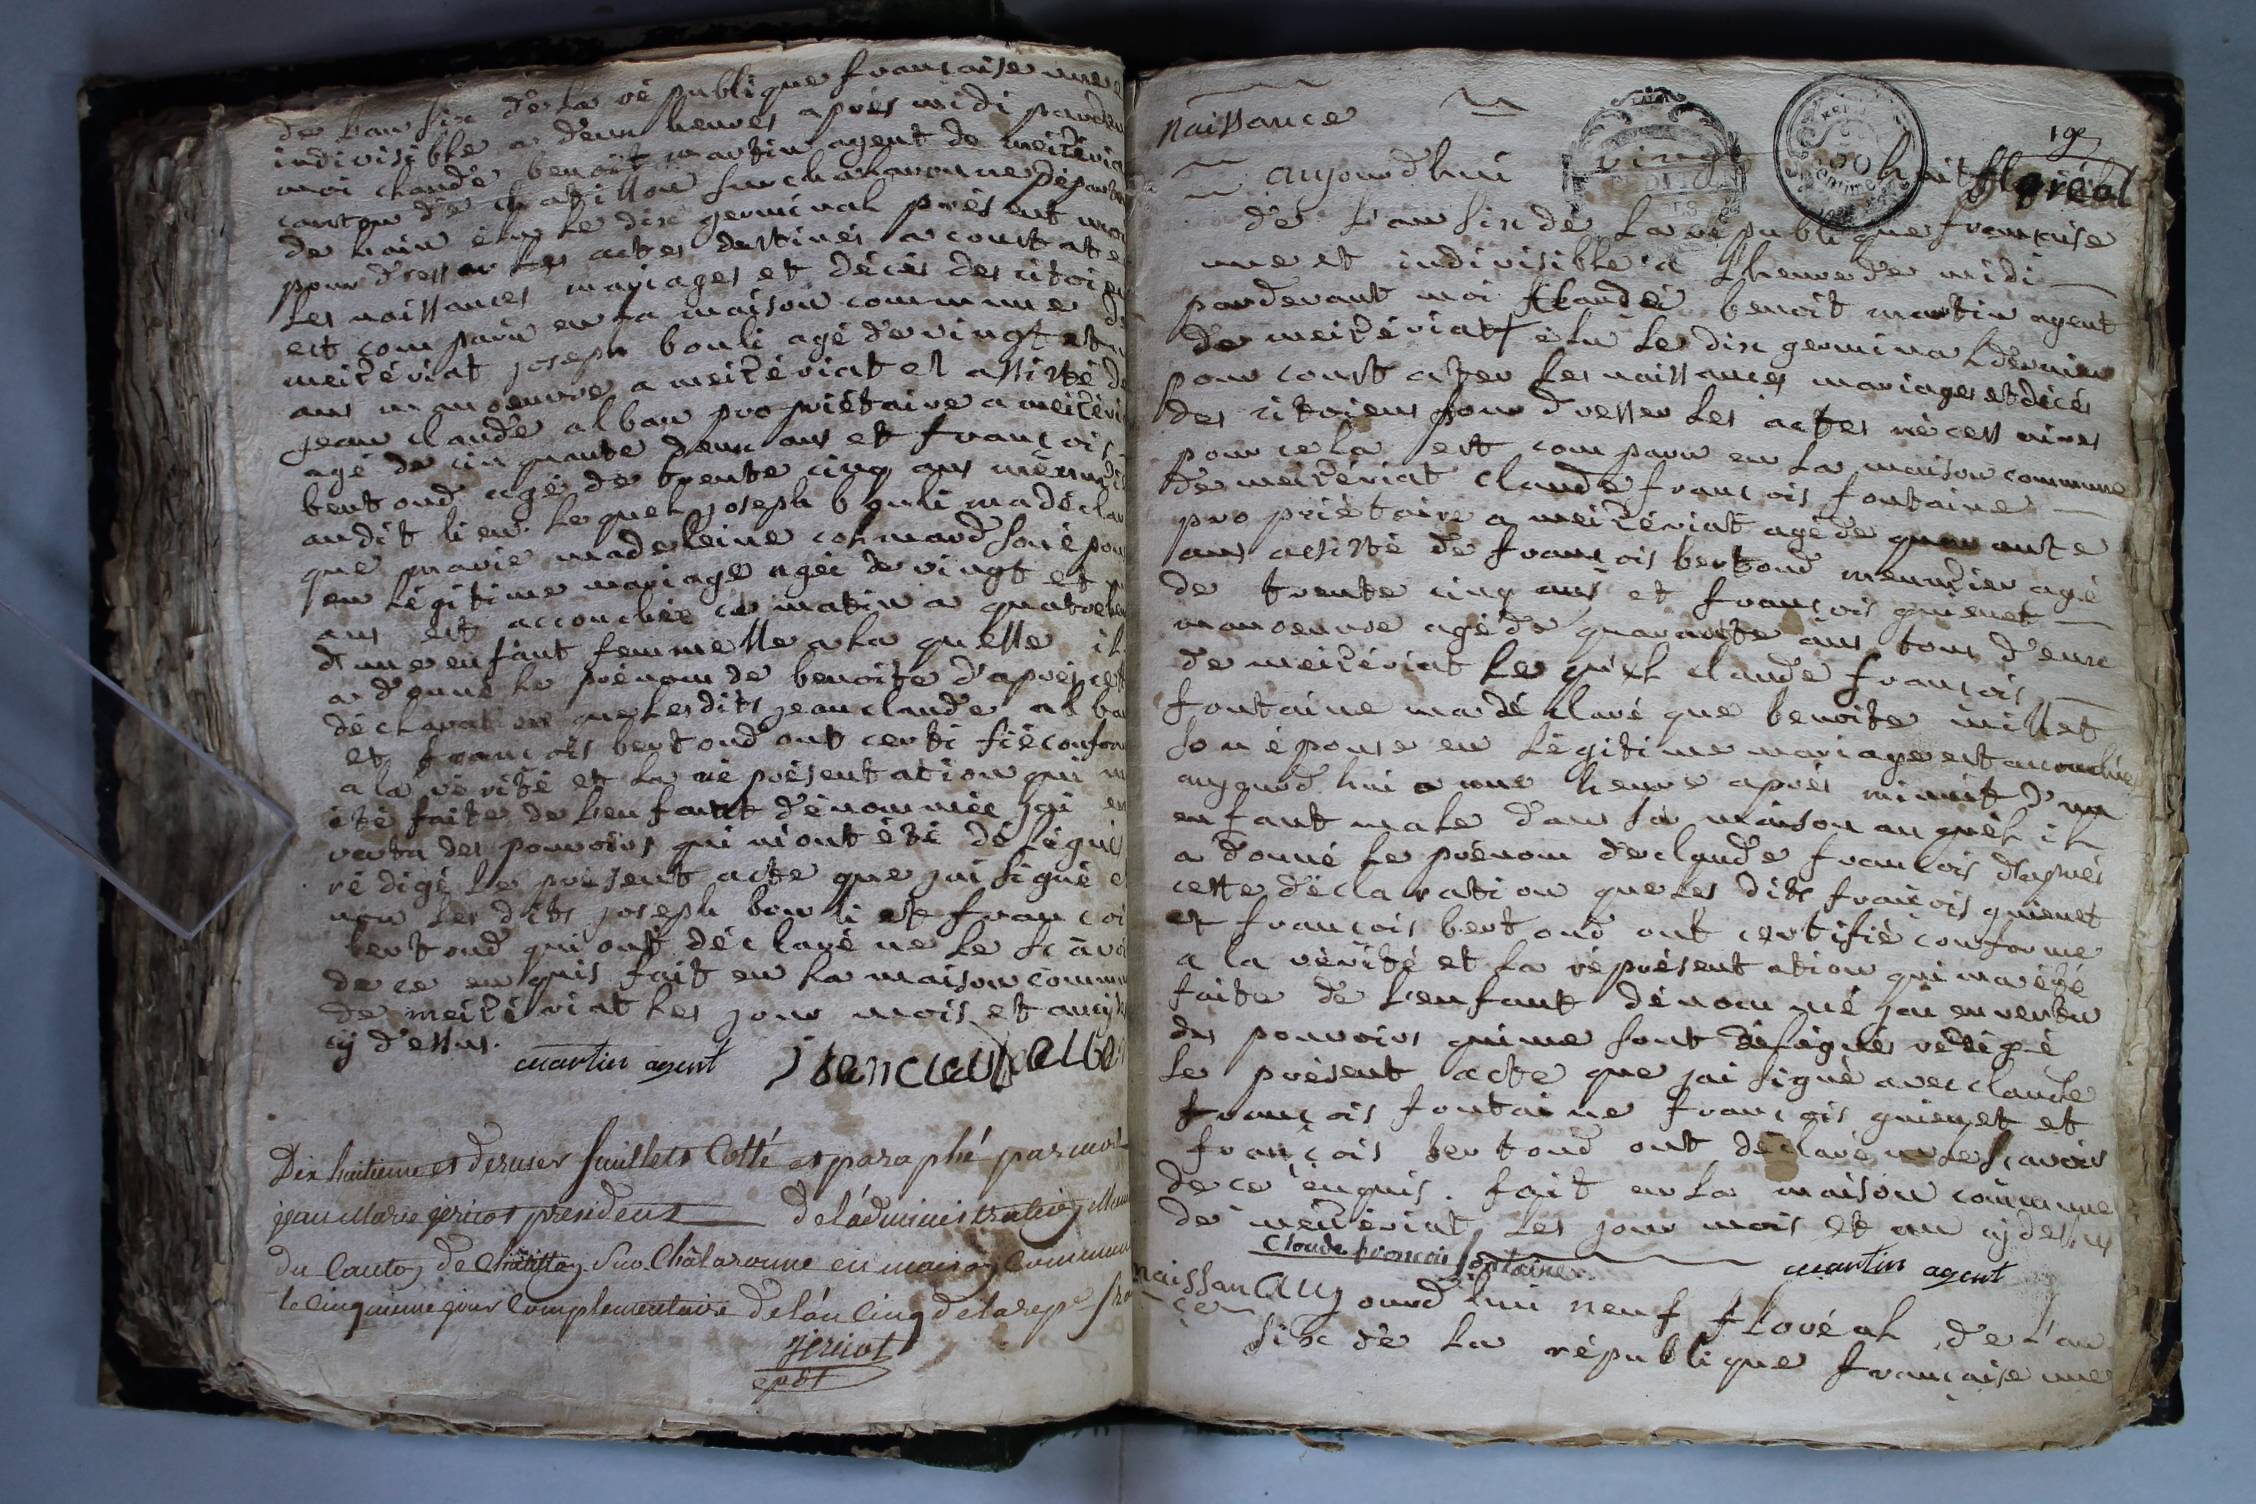 de l'an six de la république française une e
indivisible a deux heures après midi pardev
moi claude benoit martin agent de meizéria
canton de chatillon sur chalaronne départem
de l'ain élu le dix germinal présent moi
pour dresser les actes destinés a constate
les naissances mariages et décès des citoien
est comparu en la maison commune de
meizériat joseph bouli agé de vingt et u
ans manoeuvre a meizériat et assisté de
jean claude alban propriétaire a meizéri
agé de cinquante deux ans et françois
bertoud agé de trente cinq ans
audit lieu. lequel joseph bouli ma déclar
que marie madeleine colmard son épou
en légitime mariage agée de vingt et
ans est accouchée ce matin a quatre heu
d'une enfant femmelle a la quelle il
a donné le prénom de benoite d'après cett
déclaration que les dits jean claude alban
et françois bertoud ont certifié confor
a la vérité et la représentation qui m
été faite de l'enfant dénommée jai en
vertu des pouvoirs qui m'ont été délégué
rédigé le présent acte que jai signé e
non les dits joseph bouli et françoi
bertoud qui ont déclaré ne le sçavoi
de ce enquis fait en la maison commu
de meizériat les jour mois et an
cy dessus.
martin agent jean claude alban
Dix huitieme et dernier feuillets Cotté et paraphé par moi
jean Marie jericot president de l'administration Mun
du Canton de Châtillon Sur Chalaronne en maison Commune
le cinquieme jour Complementaire de l'an Cinq de la rep.e fra
Jericot
pdt
19e
naissance
aujourd'hui vingt huit floréal
de l'an six de la république française
une et indivisible a l'heure de midi
pardevant moi claude benoit martin agent
de meizériat élu le dix germinal dernier
pour constater les naissances mariages et décés
des citoiens pour dresser les actes nécessaires
pour cela est comparu en la maison commune
de meizériat claude françois fontaine
propriétaire a meizériat agé de quarante
ans assisté de françois bertoud meunier agé
de trente cinq ans et françois guienet
manoeuvre agé de quarante ans tous deux
de meizériat lequel claude françois
fontaine ma déclaré que benoite millet
son épouse en légitime mariage est accouchée
aujourd'hui a une heure après minuit d'un
enfant male dans sa maison auquel il
a donné le prénom de claude françois d'après
cette déclaration que les dits françois guienet
et françois bertoud ont certifié conforme
a la vérité et la représentation qui ma été
faite de l'enfant dénommé jai en vertu
des pouvoirs qui me sont délégués rédigé
le présent acte que jai signé avec claude
françois fontaine françois guienet et
françois bertoud ont déclaré ne le scavoir
de ce enquis. fait en la maison commune
de meizériat les jour mois et an cy dessus
Claude francois fontaine martin agent
naissance
Aujourd'hui neuf floréal de l'an
six de la république française une